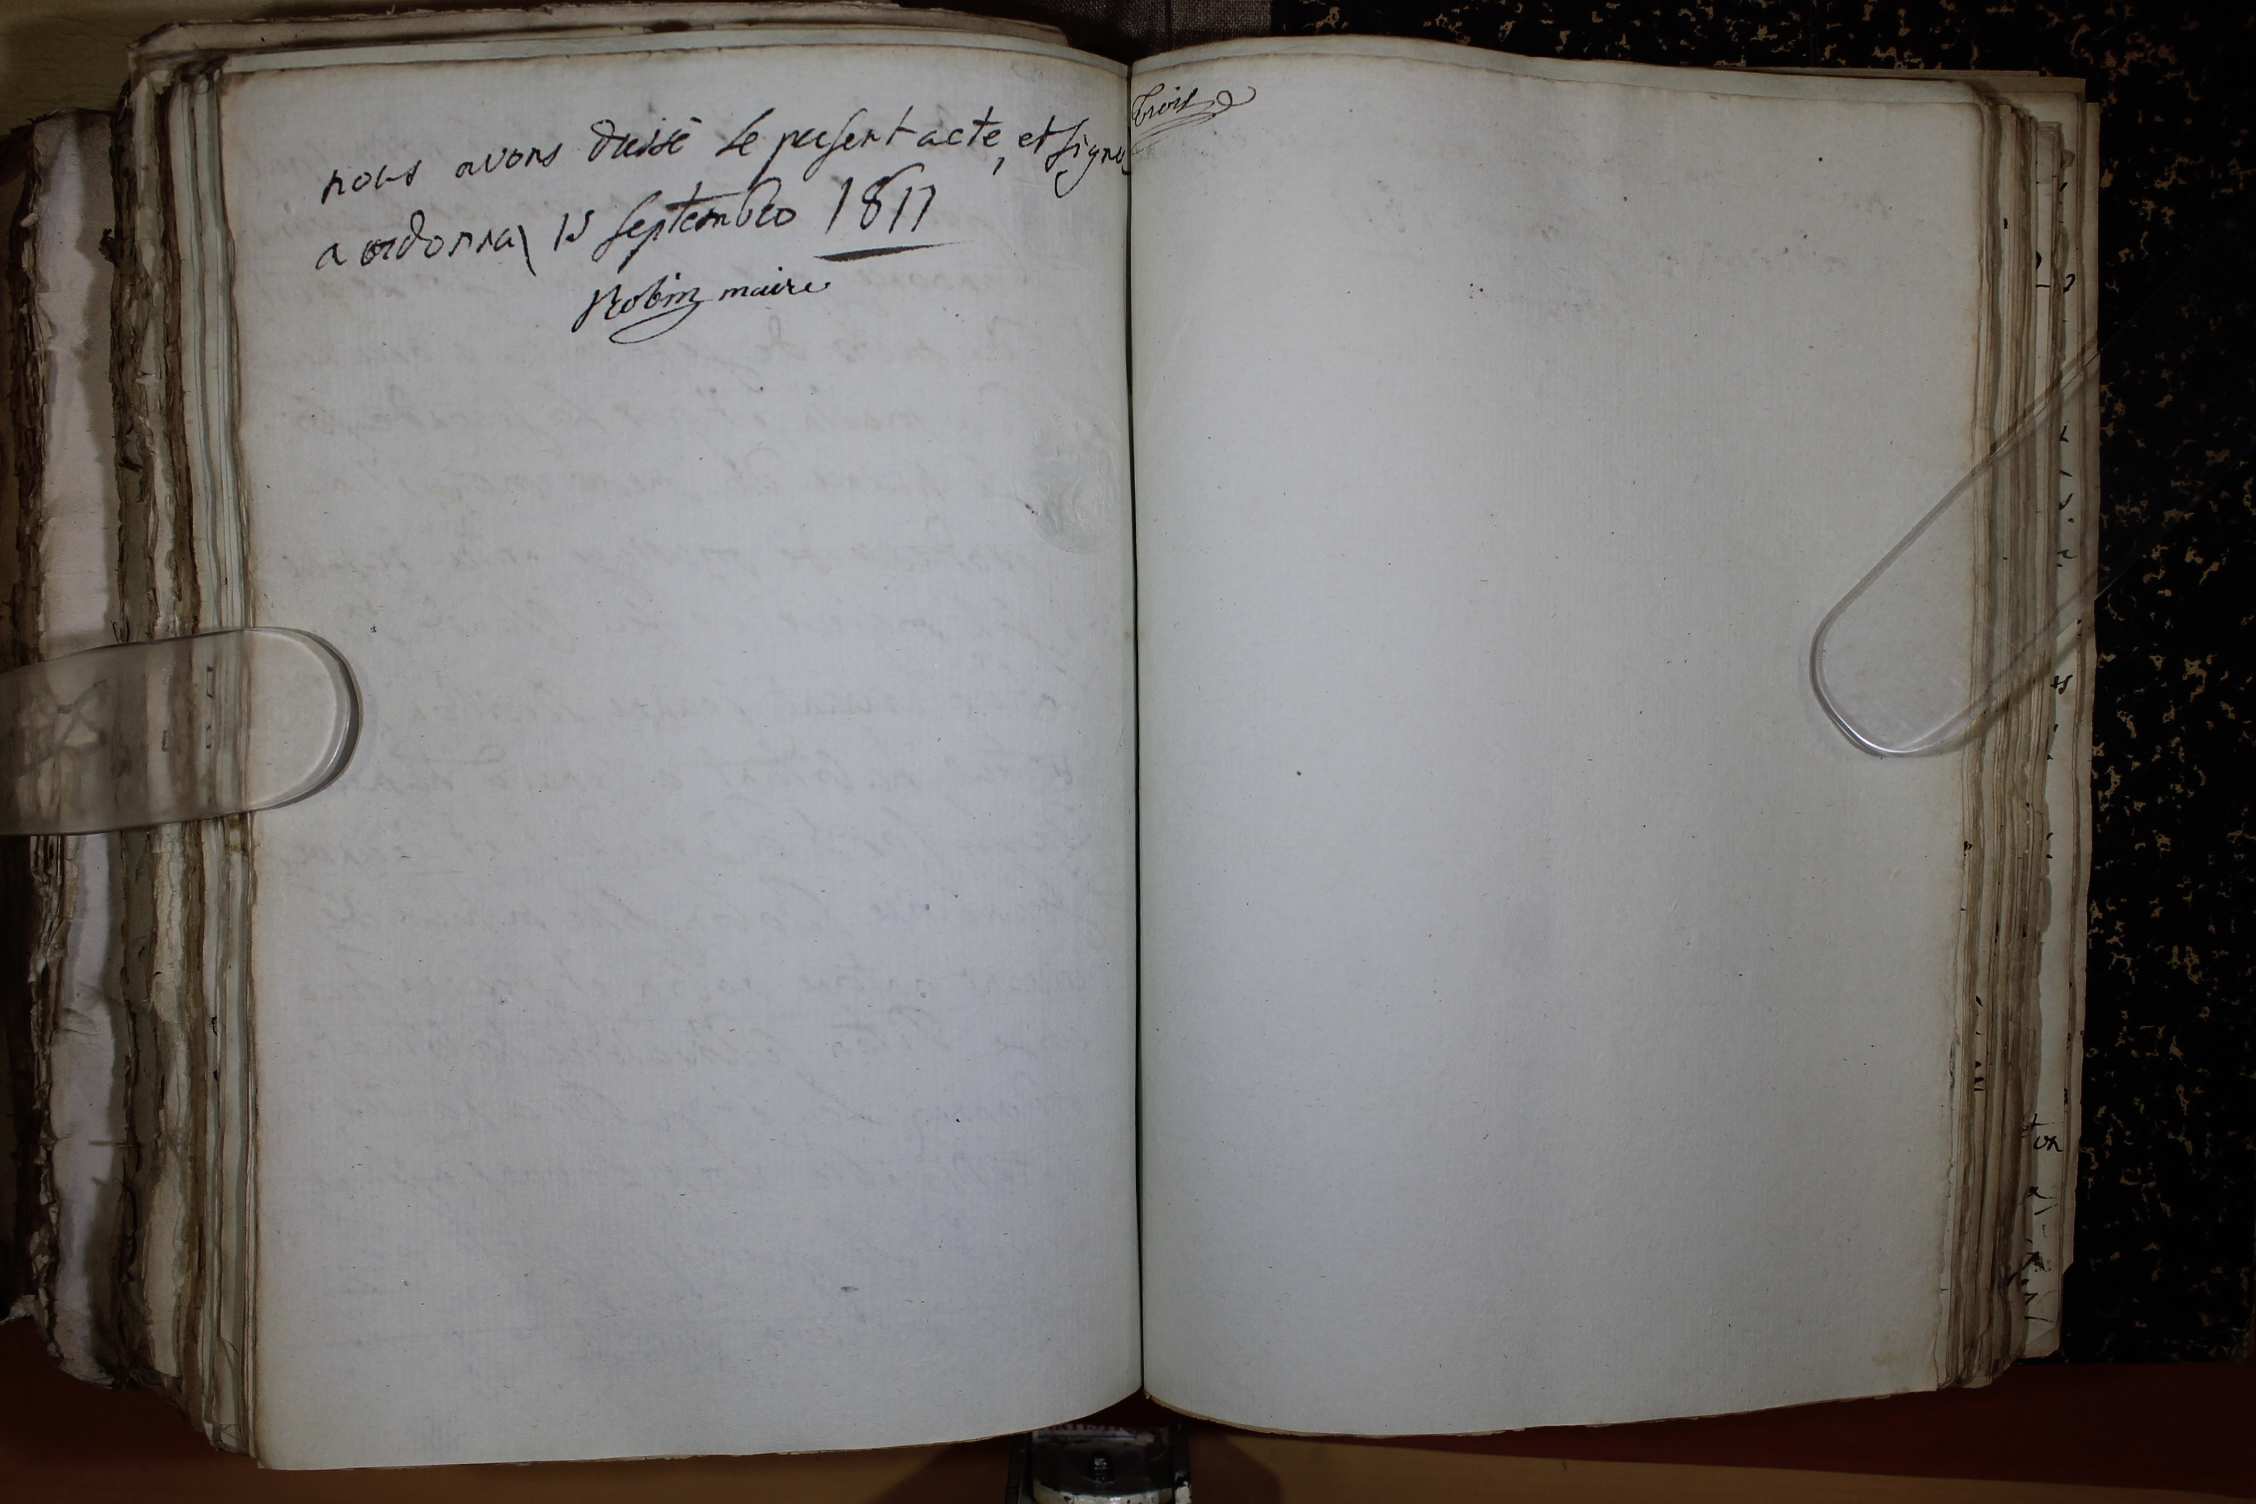 nous avons dressé le present acte, et signé
a ordonna 15 septembre 1811
Robin maire
trois